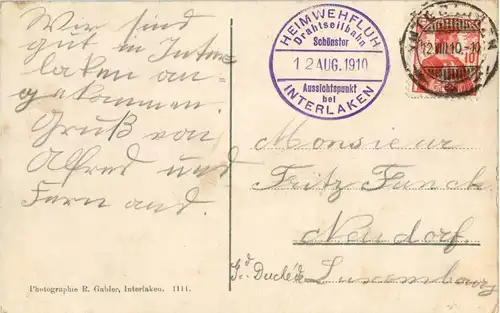 Wir sind
gut in Inter
laken an-
gekommen.
Gruß von
Alfred und
Fernand.
HEIMWEHFLUH
Drahtseilbahn
Schönster
12 AUG. 1910
Aussichtspunkt
bei
INTERLAKEN
12.VIII.10.-10
10
Monsieur
Fritz Funck
Neudorf.
Gd. Duché de Luxembourg
Photographie R. Gabler, Interlaken. 1111.